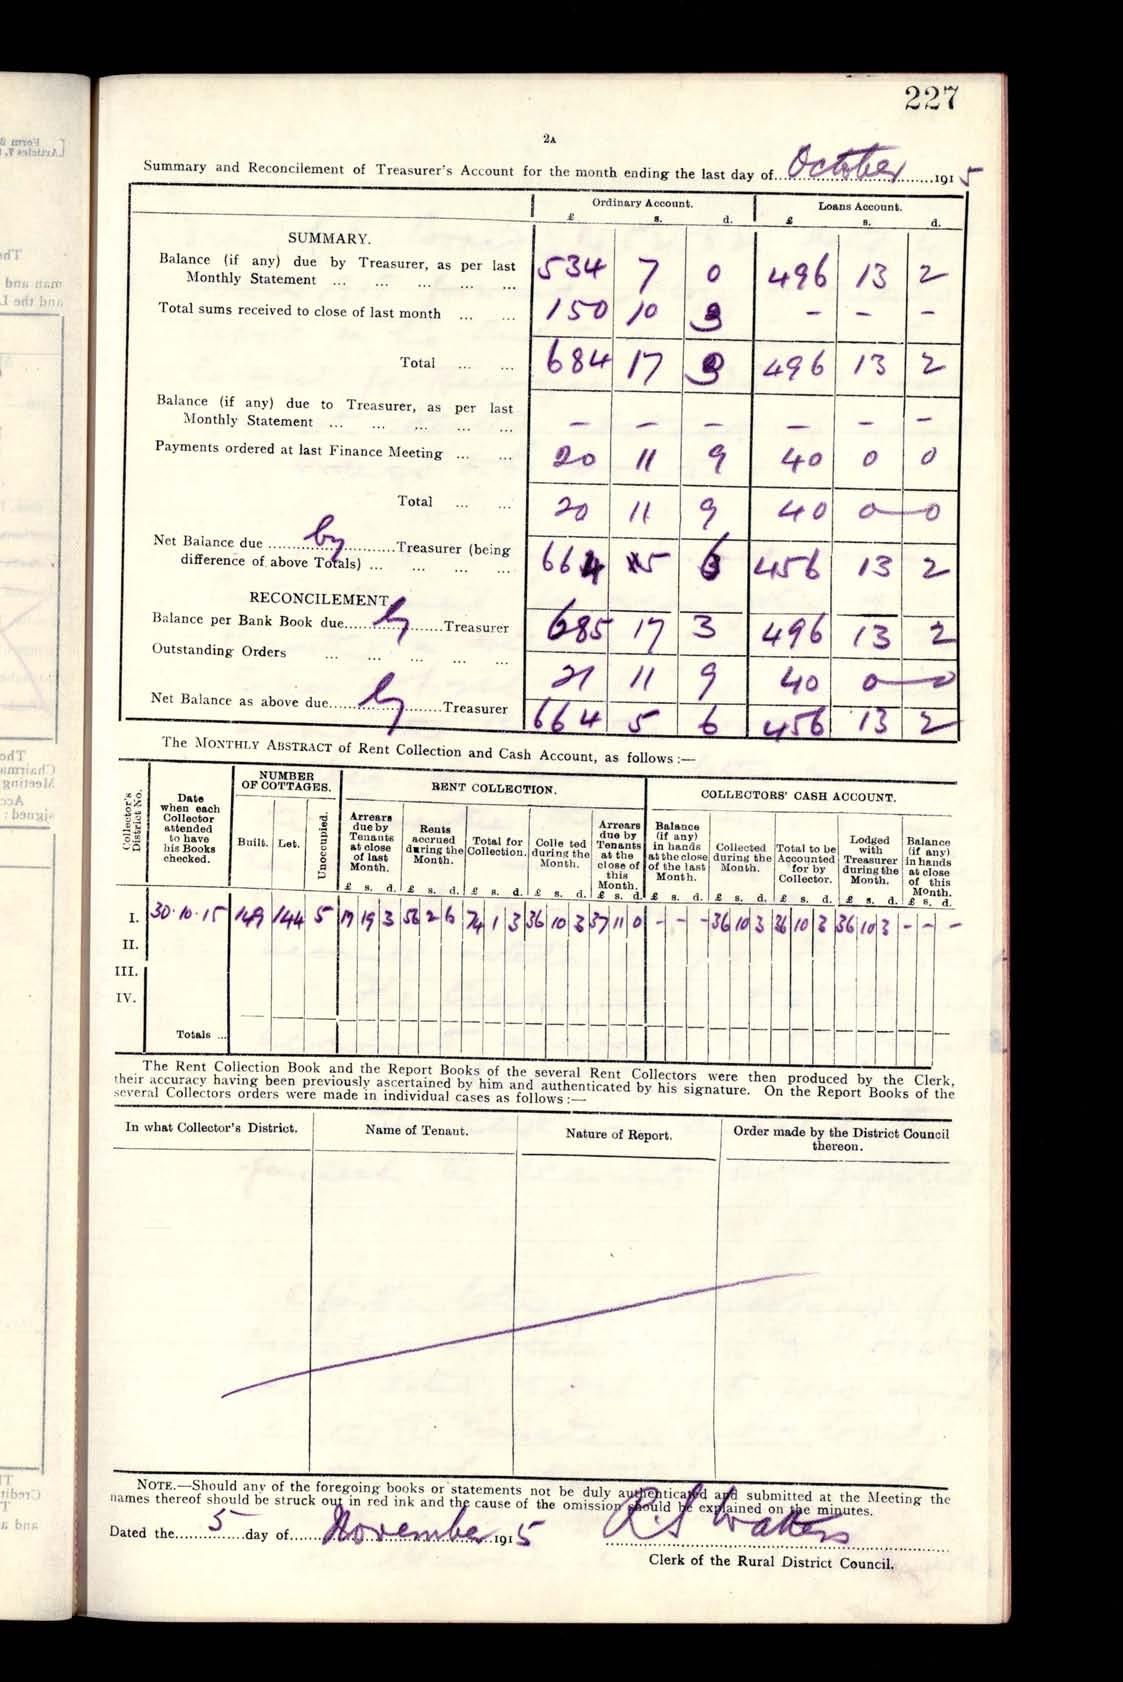 227
2A
Summary and Reconcilement of Treasurer's Account for the month ending the last day of October 1915
Ordinary Account. Loans Account.
£ s. d. £ s. d.
SUMMARY.
Balance (if any) due by Treasurer, as per last
Monthly Statement ... ... ... ... ... 534 7 0 496 13 2
Total sums received to close of last month ... ... 150 10 3 - - -
Total ... ... 684 17 3 496 13 2
Balance (if any) due to Treasurer, as per last
Monthly Statement ... ... ... ... ... - - - - - -
Payments ordered at last Finance Meeting ... ... 20 11 9 40 0 0
Total ... ... 20 11 9 40 0 0
Net Balance due by Treasurer (being
difference of above Totals) ... ... ... ... 664 5 6 456 13 2
RECONCILEMENT.
Balance per Bank Book due by Treasurer 685 17 3 496 13 2
Outstanding Orders ... ... ... ... ... 21 11 9 40 0 0
Net Balance as above due by Treasurer 664 5 6 456 13 2
The MONTHLY ABSTRACT of Rent Collection and Cash Account, as follows :—
Collector's District No.
Date when each Collector attended to have his Books checked.
NUMBER OF COTTAGES.
Built. Let. Unoccupied.
RENT COLLECTION.
Arrears due by Tenants at close of last Month.
Rents accrued during the Month.
Total for Collection.
Colle ted during the Month.
Arrears due by Tenants at the close of this Month.
COLLECTORS' CASH ACCOUNT.
Balance (if any) in hands at the close of the last Month.
Collected during the Month.
Total to be Accounted for by Collector.
Lodged with Treasurer during the Month.
Balance (if any) in hands at close of this Month.
£ s. d. £ s. d. £ s. d. £ s. d. £ s. d. £ s. d. £ s. d. £ s. d. £ s. d. £ s. d.
I. 30.10.15 149 144 5 17 19 3 56 2 6 74 1 3 36 10 3 37 11 0 - - - 36 10 3 36 10 3 36 10 3 - - -
II.
III.
IV.
Totals ...
The Rent Collection Book and the Report Books of the several Rent Collectors were then produced by the Clerk,
their accuracy having been previously ascertained by him and authenticated by his signature. On the Report Books of the
several Collectors orders were made in individual cases as follows :—
In what Collector's District. Name of Tenant. Nature of Report. Order made by the District Council
thereon.
NOTE.—Should any of the foregoing books or statements not be duly authenticated and submitted at the Meeting the
names thereof should be struck out in red ink and the cause of the omission should be explained on the minutes.
Dated the 5 day of November 1915 R. S. Watters
Clerk of the Rural District Council.